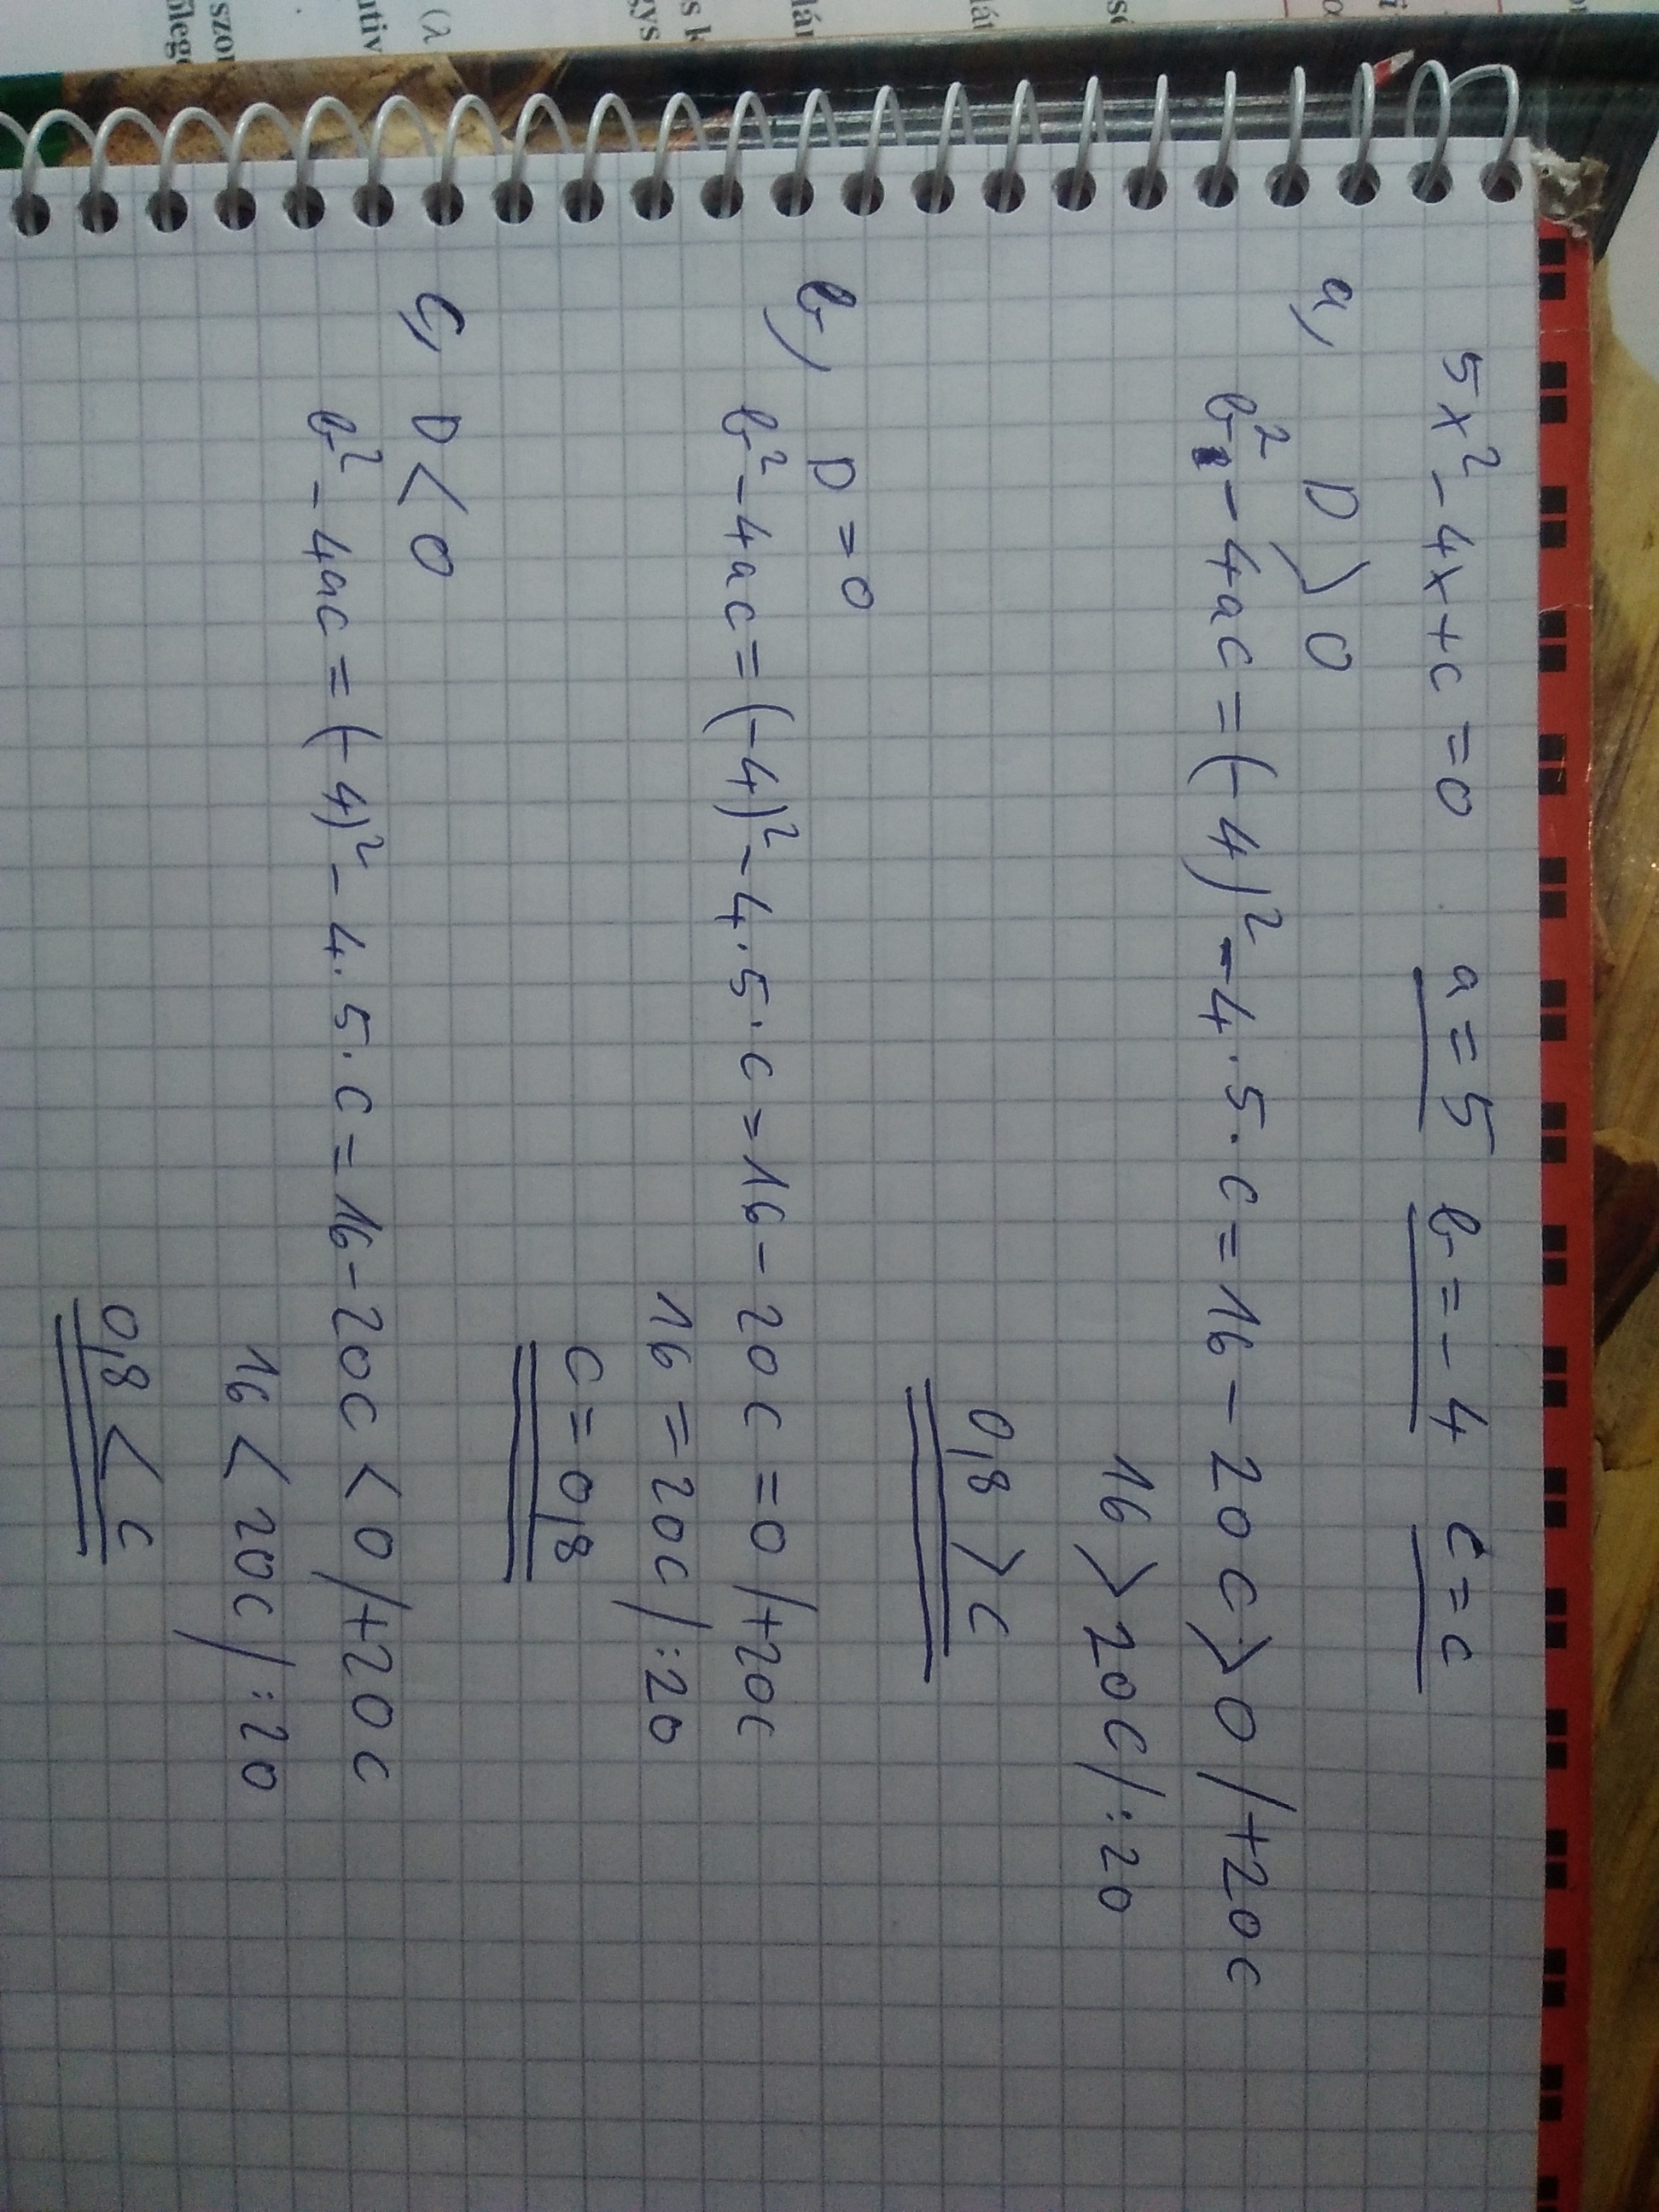 5x² - 4x + c = 0 a = 5 b = -4 c = c
a, D > 0
b² - 4ac = (-4)² - 4·5·c = 16 - 20c > 0 /+20c
16 > 20c /:20
0,8 > c
b) D = 0
b² - 4ac = (-4)² - 4·5·c = 16 - 20c = 0 /+20c
16 = 20c /:20
c = 0,8
c, D < 0
b² - 4ac = (-4)² - 4·5·c = 16 - 20c < 0 /+20c
16 < 20c /:20
0,8 < c